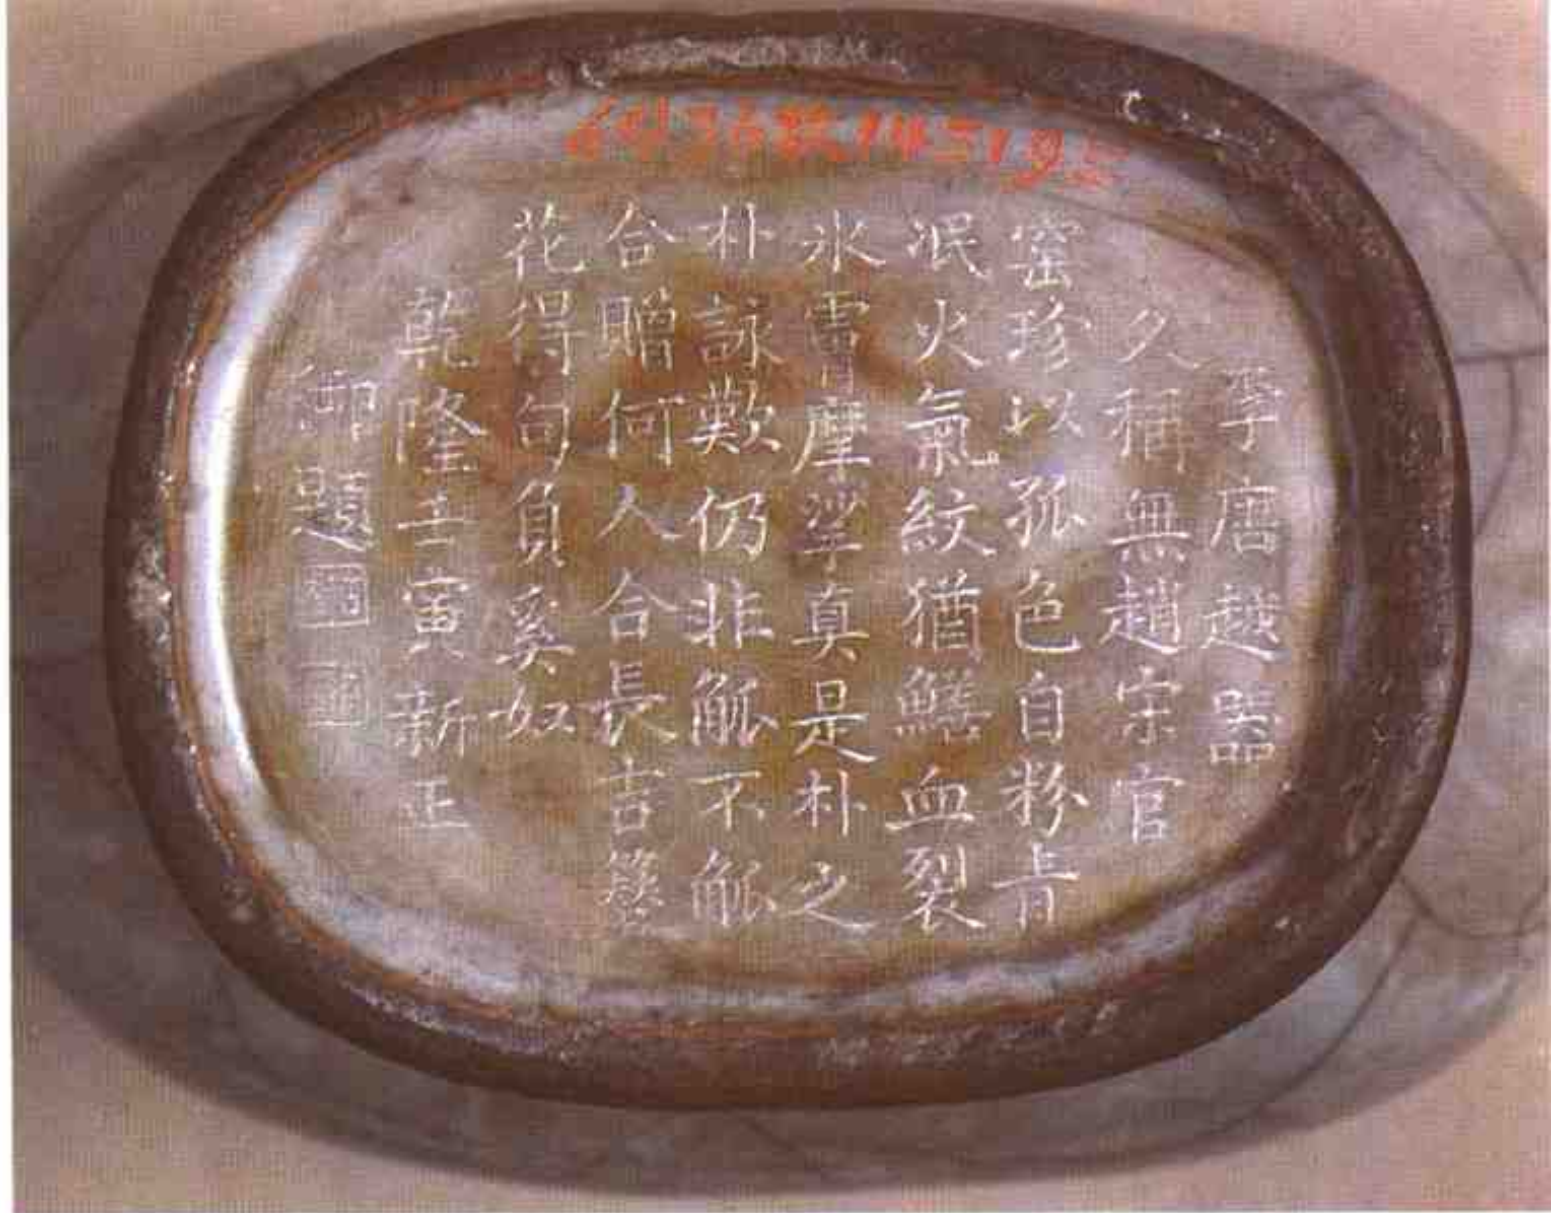 李唐越器
久稱無趙宋官
窑珍以孤色自粉青
泯火氣紋猶鱔血裂
氷雪摩挲真是朴之
朴詠歎仍非觚不觚
合贈何人合長吉簪
花得句負奚奴
乾隆壬寅新正
御題